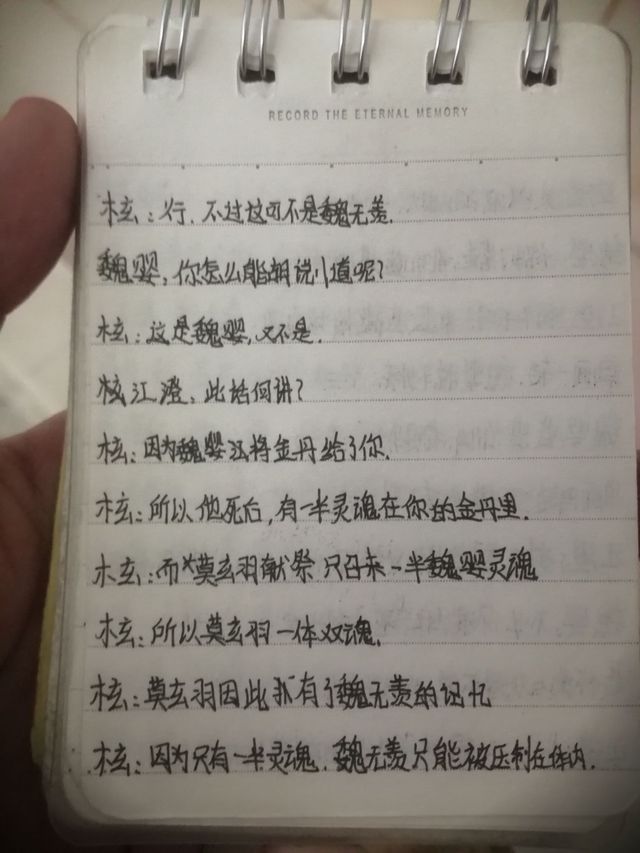 RECORD THE ETERNAL MEMORY
木玄：行，不过这可不是魏无羡.
魏婴，你怎么能胡说八道呢？
木玄：这是魏婴，又不是.
江澄，此话何讲？
木玄：因为魏婴将金丹给了你.
木玄：所以他死后，有一半灵魂在你的金丹里.
木玄：而莫玄羽献祭 只召来一半魏婴灵魂
木玄：所以莫玄羽一体双魂.
木玄：莫玄羽因此有了魏无羡的记忆
木玄：因为只有一半灵魂.魏无羡只能被压制在体内.